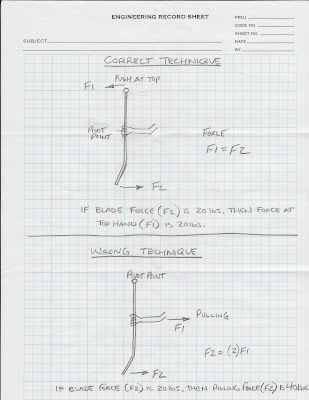 ENGINEERING RECORD SHEET
PROJ.
CODE NO.
SHEET NO.
SUBJECT
DATE
BY
CORRECT TECHNIQUE
F1
PUSH AT TOP
PIVOT
POINT
FORCE
F1 = F2
F2
IF BLADE FORCE (F2) IS 20 LBS, THEN FORCE AT
TOP HAND (F1) IS 20 LBS.
WRONG TECHNIQUE
PIVOT POINT
PULLING
F1
F2 = (2)F1
F2
IF BLADE FORCE (F2) IS 20 LBS, THEN PULLING FORCE (F2) IS 40 LBS